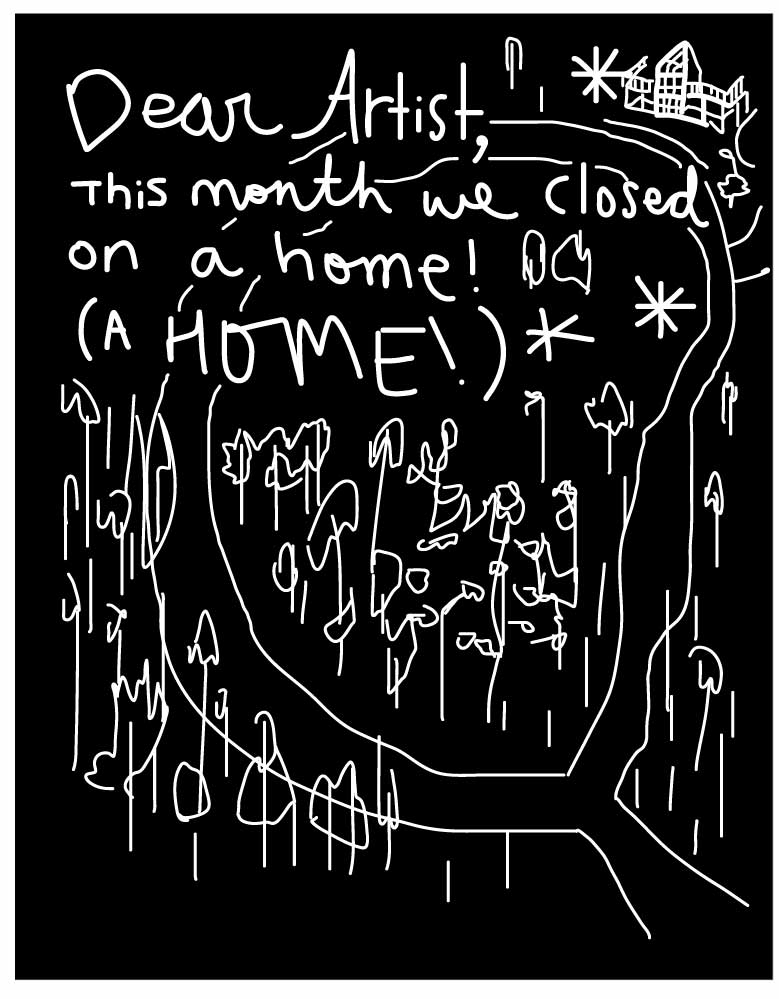 Dear Artist,
This month we closed
on a home!
(A HOME!)